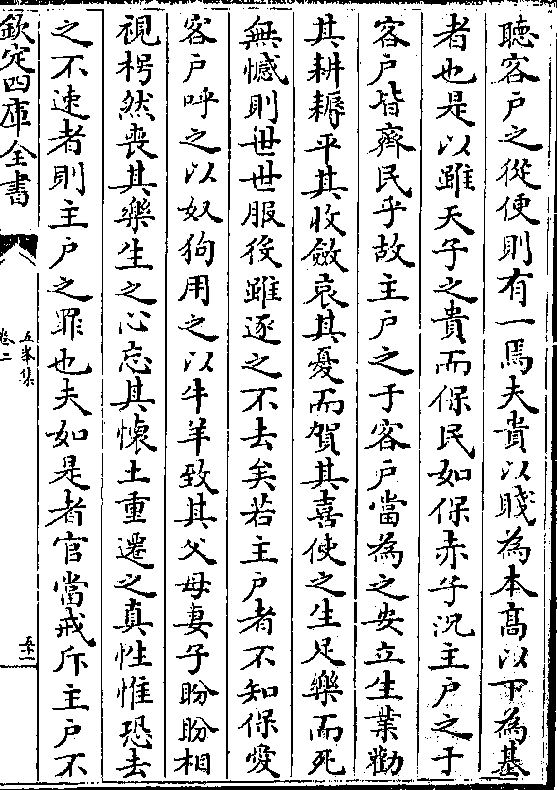 聽客戶之從便則有一焉夫貴以賤為本髙以下為基
者也是以雖天子之貴而保民如保赤子況主戶之于
客戶皆齊民乎故主戶之于客戶當為之安立生業勸
其耕耨平其收斂哀其憂而賀其喜使之生足樂而死
無憾則世世服役雖逐之不去矣若主戶者不知保愛
客戶呼之以奴狗用之以牛羊致其父母妻子盻盻相
視枵然喪其樂生之心忘其懐土重遷之真性惟恐去
之不速者則主戶之罪也夫如是者官當戒斥主戶不
欽定四庫全書
五峯集
卷二
五十一